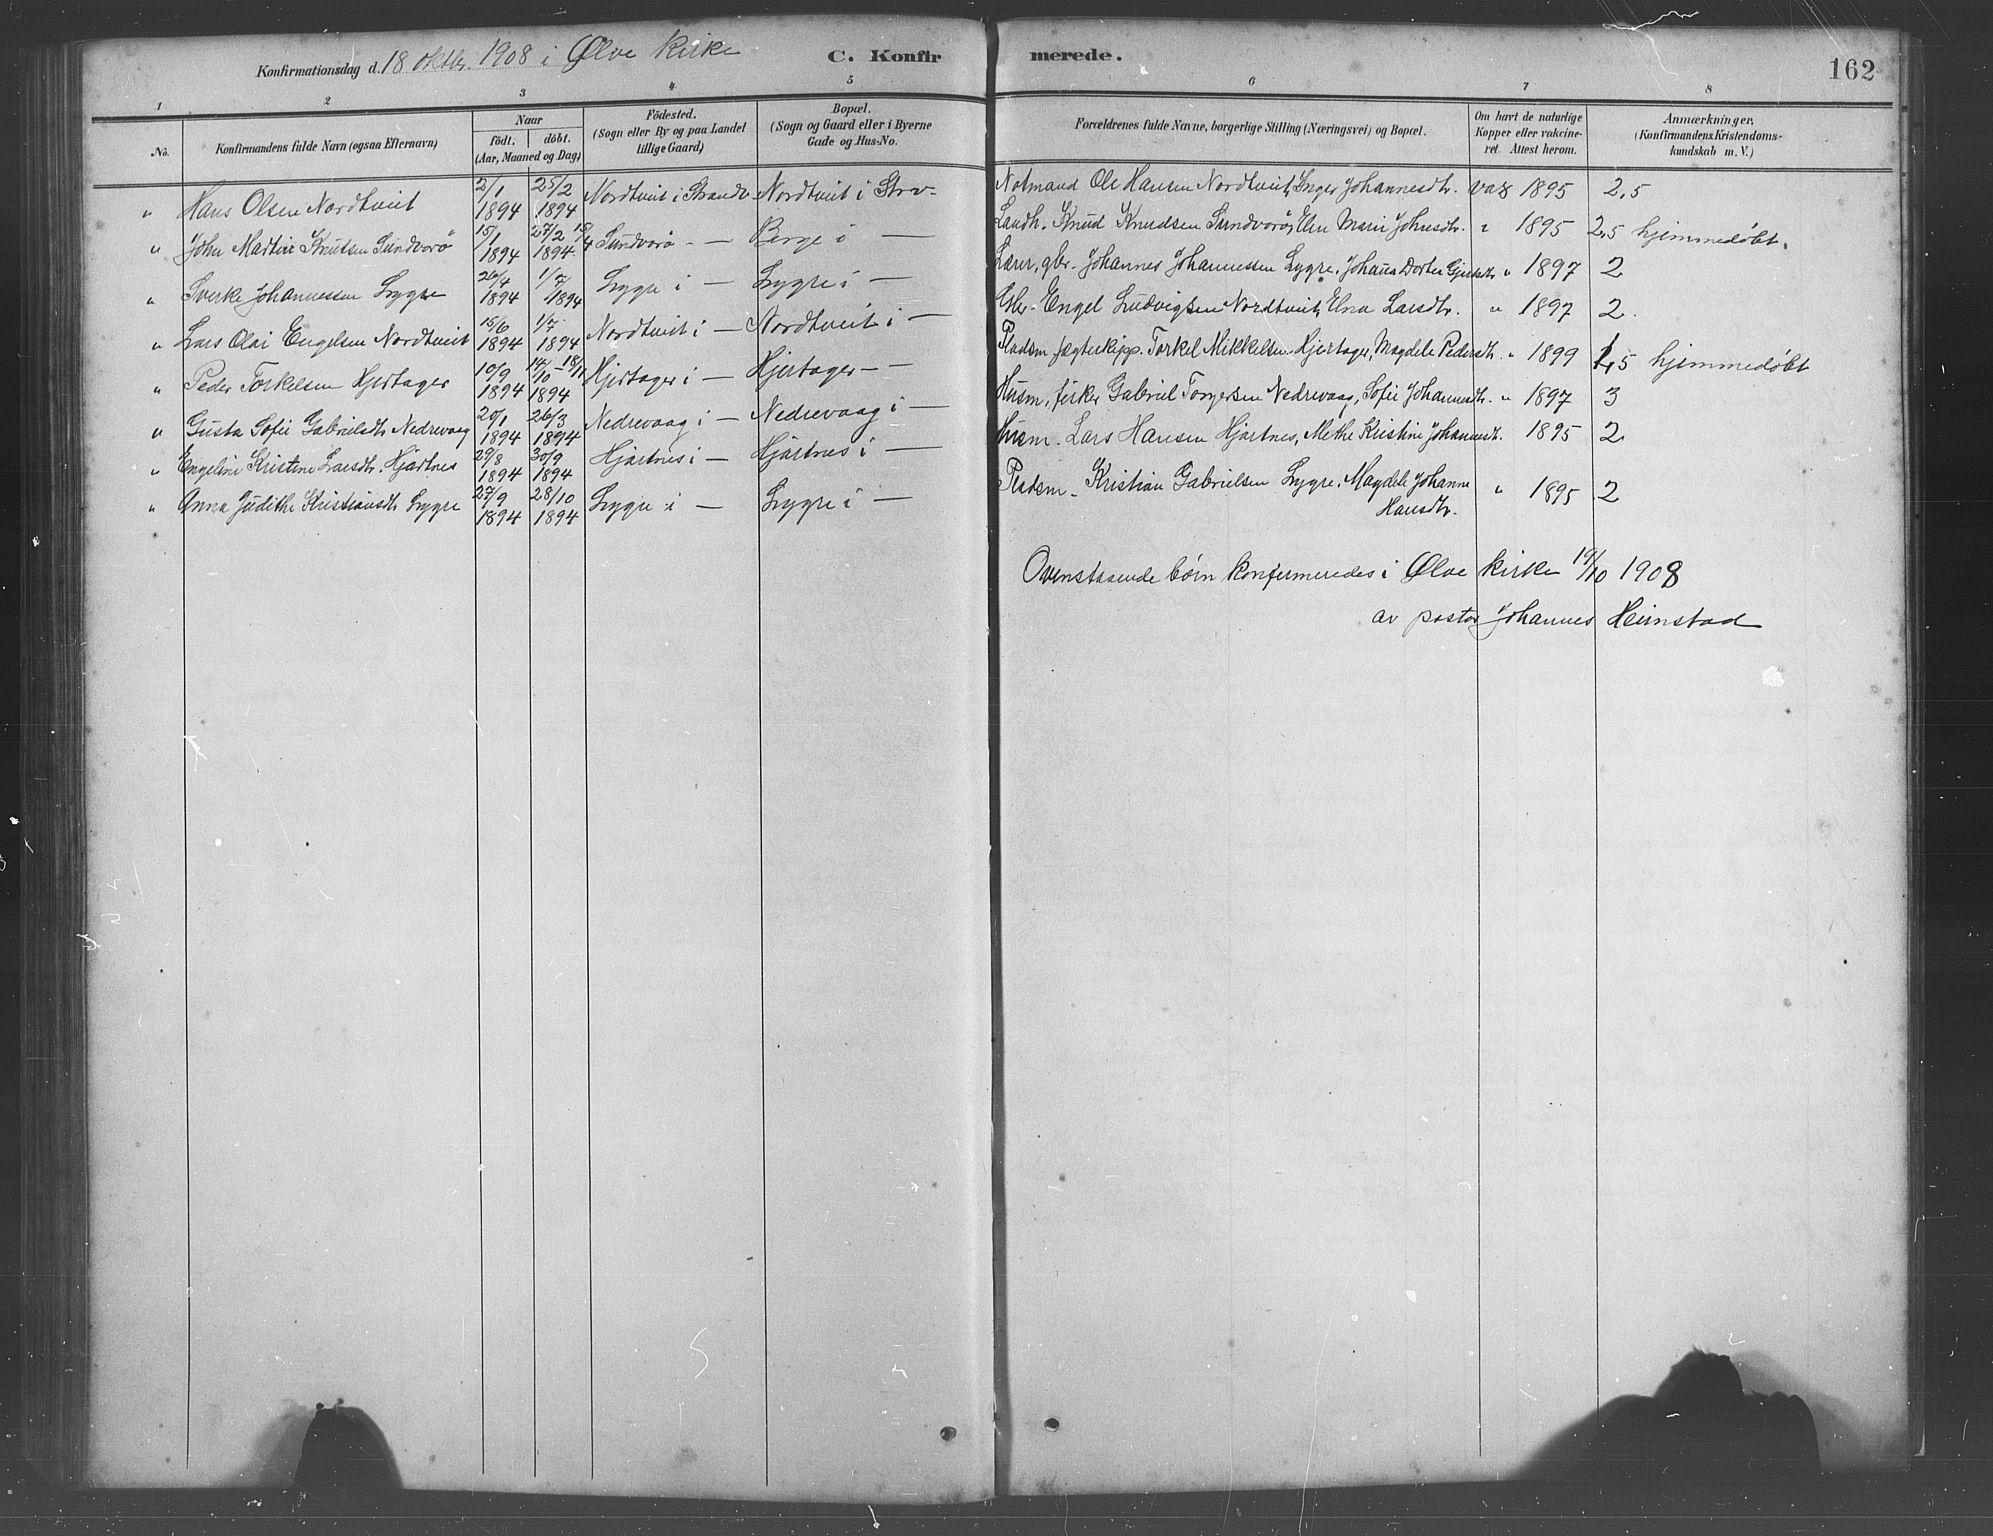 Konfirmationsdag d. 18 oktbr. 1908 i Ølve kirke
C. Konfir merede.
162
1 2 3 4 5 6 7 8
No.
Konfirmandens fulde Navn (ogsaa Efternavn)
Naar
födt. döbt.
(Aar, Maaned og Dag)
Födested.
(Sogn eller By og paa Landet
tillige Gaard)
Bopæl.
(Sogn og Gaard eller i Byerne
Gade og Hus-No.
Forældrenes fulde Navne, borgerlige Stilling (Næringsvei) og Bopæl.
Om havt de naturlige
Kopper eller vaccine-
ret. Attest herom.
Anmærkninger,
(Konfirmandens Kristendoms-
kundskab m. V.)
" Hans Olsen Nordtveit 2/1 1894 25/2 1894 Nordtveit i Strandv Nordtveit i Strv- Notmand Ole Hansen Nordtveit, Inger Johannesdtr. vax 1895 2,5
" John Martin Knutsen Sundvorö 15/1 1894 27/2 15/4 1894 Sundvorö - — Berge i — Landh. Knud Knudsen Sundvorö, Elen Marie Johnsdtr. " 1895 2,5 hjemmedøbt.
" Sverke Johannessen Lygre 26/4 1894 1/7 1894 Lygre i — Lygre i — Lærer, gbr. Johannes Johannessen Lygre, Johanna Dortea " 1897 2
" Lars Olai Engelsen Nordtveit 15/6 1894 1/7 1894 Nordtveit i — Nordtveit i — Gbr. Engel Ludvigsen Nordtveit, Elna Larsdtr. " 1897 2.
" Peder Torkelsen Hjertager 10/9 1894 14/10 - 18/11 1894 Hjertager i — Hjertager - — Pladsm. jægterkipp. Torkel Mikkelsen Hjertager, Magdele Pedersdtr. " 1899 1,5 hjemmedøbt
" Gusta Sofie Gabrielsdtr. Nedrevaag 20/1 1894 26/3 1894 Nedrevaag i — Nedrevaag i — Husm, fisker Gabriel Torgersen Nedrevaag, Sofie Johannesdtr. " 1897 3
" Engeline Kristine Larsdtr. Hjartnes 29/8 1894 30/9 1894 Hjartnes i — Hjartnes i — Husm. Lars Hansen Hjartnes, Methe Kristine Johannesdtr. 1895 2
" Anna Judithe Kristiansdtr. Lygre 27/9 1894 28/10 1894 Lygre i — Lygre i — Pladsm. Kristian Gabrielsen Lygre, Magdele Johanne " 1895 2
Hansdtr.
Ovenstaaende börn konfirmeredes i Ølve kirke 19/10 1908
av pastor Johannes Heimstad